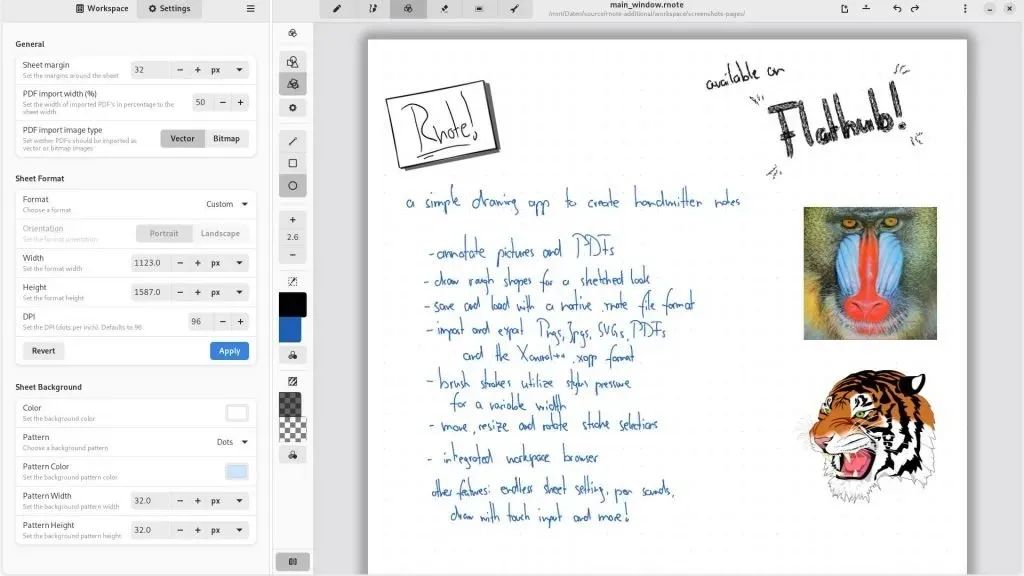 Workspace
Settings
main_window.rnote
General
Sheet margin
Set the margins around the sheet
32
px
PDF import width (%)
Set the width of imported PDF's in percentage to the sheet width
50
PDF import image type
Set wether PDFs should be imported as vector or bitmap images
Vector
Bitmap
Sheet Format
Format
Choose a format
Custom
Orientation
Set the format orientation
Portrait
Landscape
Width
Set the format width
1123.0
px
Height
Set the format height
1587.0
px
DPI
Set the DPI (dots per inch). Defaults to 96
96
Revert
Apply
Sheet Background
Color
Set the background color
Pattern
Choose a background pattern
Dots
Pattern Color
Set the background pattern color
Pattern Width
Set the background pattern width
32.0
px
Pattern Height
Set the background pattern height
32.0
px
2.6
Rnote!
available on
Flathub!
a simple drawing app to create handwritten notes
- annotate pictures and PDFs
- draw rough shapes for a sketched look
- save and load with a native .rnote file format
- import and export Pngs, Jpgs, SVGs, PDFs
and the Xournal++ .xopp format
- brush strokes utilize stylus pressure
for a variable width
- move, resize and rotate stroke selections
- integrated workspace browser
other features: endless sheet setting, pen sounds,
draw with touch input and more!